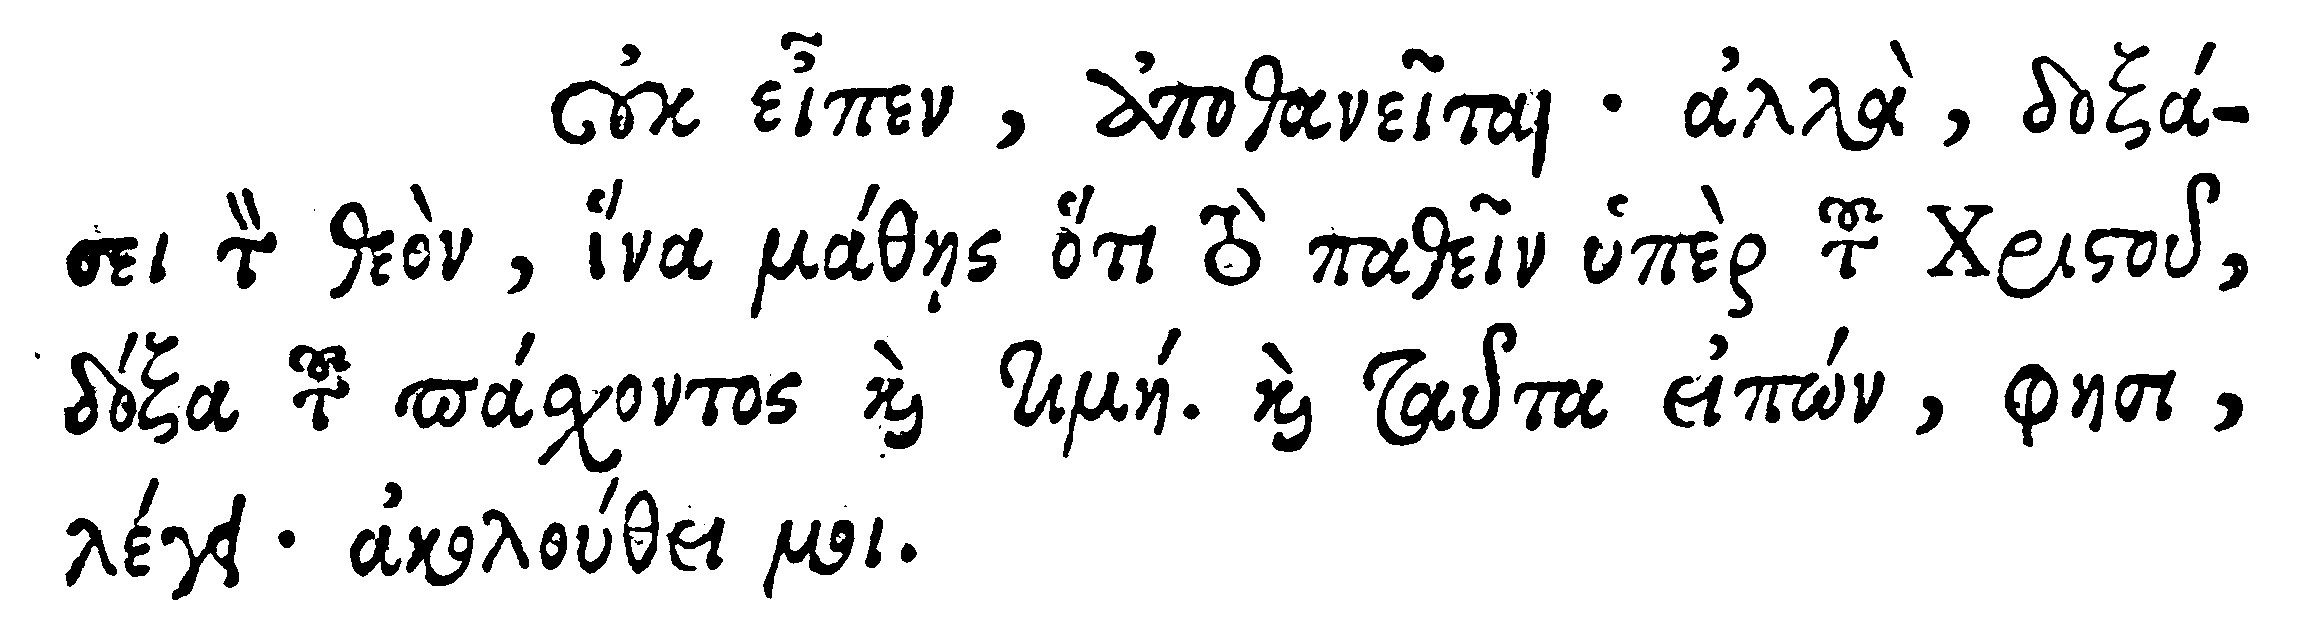 οὐκ εἶπεν, ἀποθανεῖται· ἀλλὰ, δοξά-
σει τὸν θεὸν, ἵνα μάθῃς ὅτι τὸ παθεῖν ὑπὲρ τοῦ Χριστοῦ,
δόξα τοῦ πάχοντος καὶ τιμή. καὶ ταῦτα εἰπών, φησι,
λέγει· ἀκολούθει μοι.